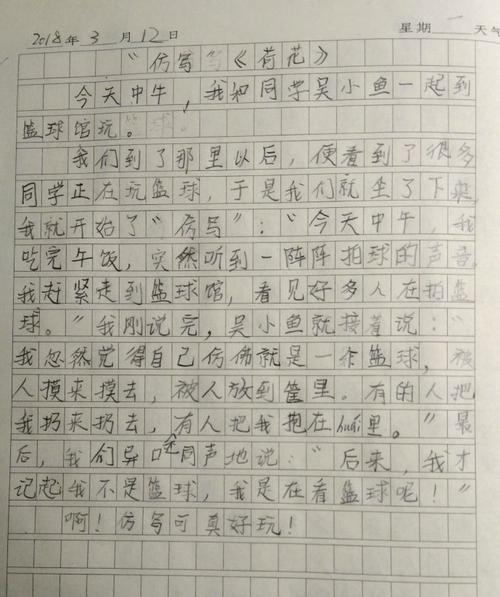 2018年 3 月 12 日 星期 一 天气
“仿写”《荷花》
今天中午，我和同学吴小鱼一起到
篮球馆玩。
我们到了那里以后，便看到了很多
同学正在玩篮球，于是我们就坐了下来，
我就开始了“仿写”：“今天中午，我
吃完午饭，突然听到一阵阵拍球的声音，
我赶紧走到篮球馆，看见好多人在拍篮
球。”我刚说完，吴小鱼就接着说：“
我忽然觉得自己仿佛就是一个篮球，被
人摸来摸去，被人放到筐里。有的人把
我扔来扔去，有人把我抱在huái里。”最
后，我们异口同声地说：“后来，我才
记起我不是篮球，我是在看篮球呢！”
啊！仿写可真好玩！